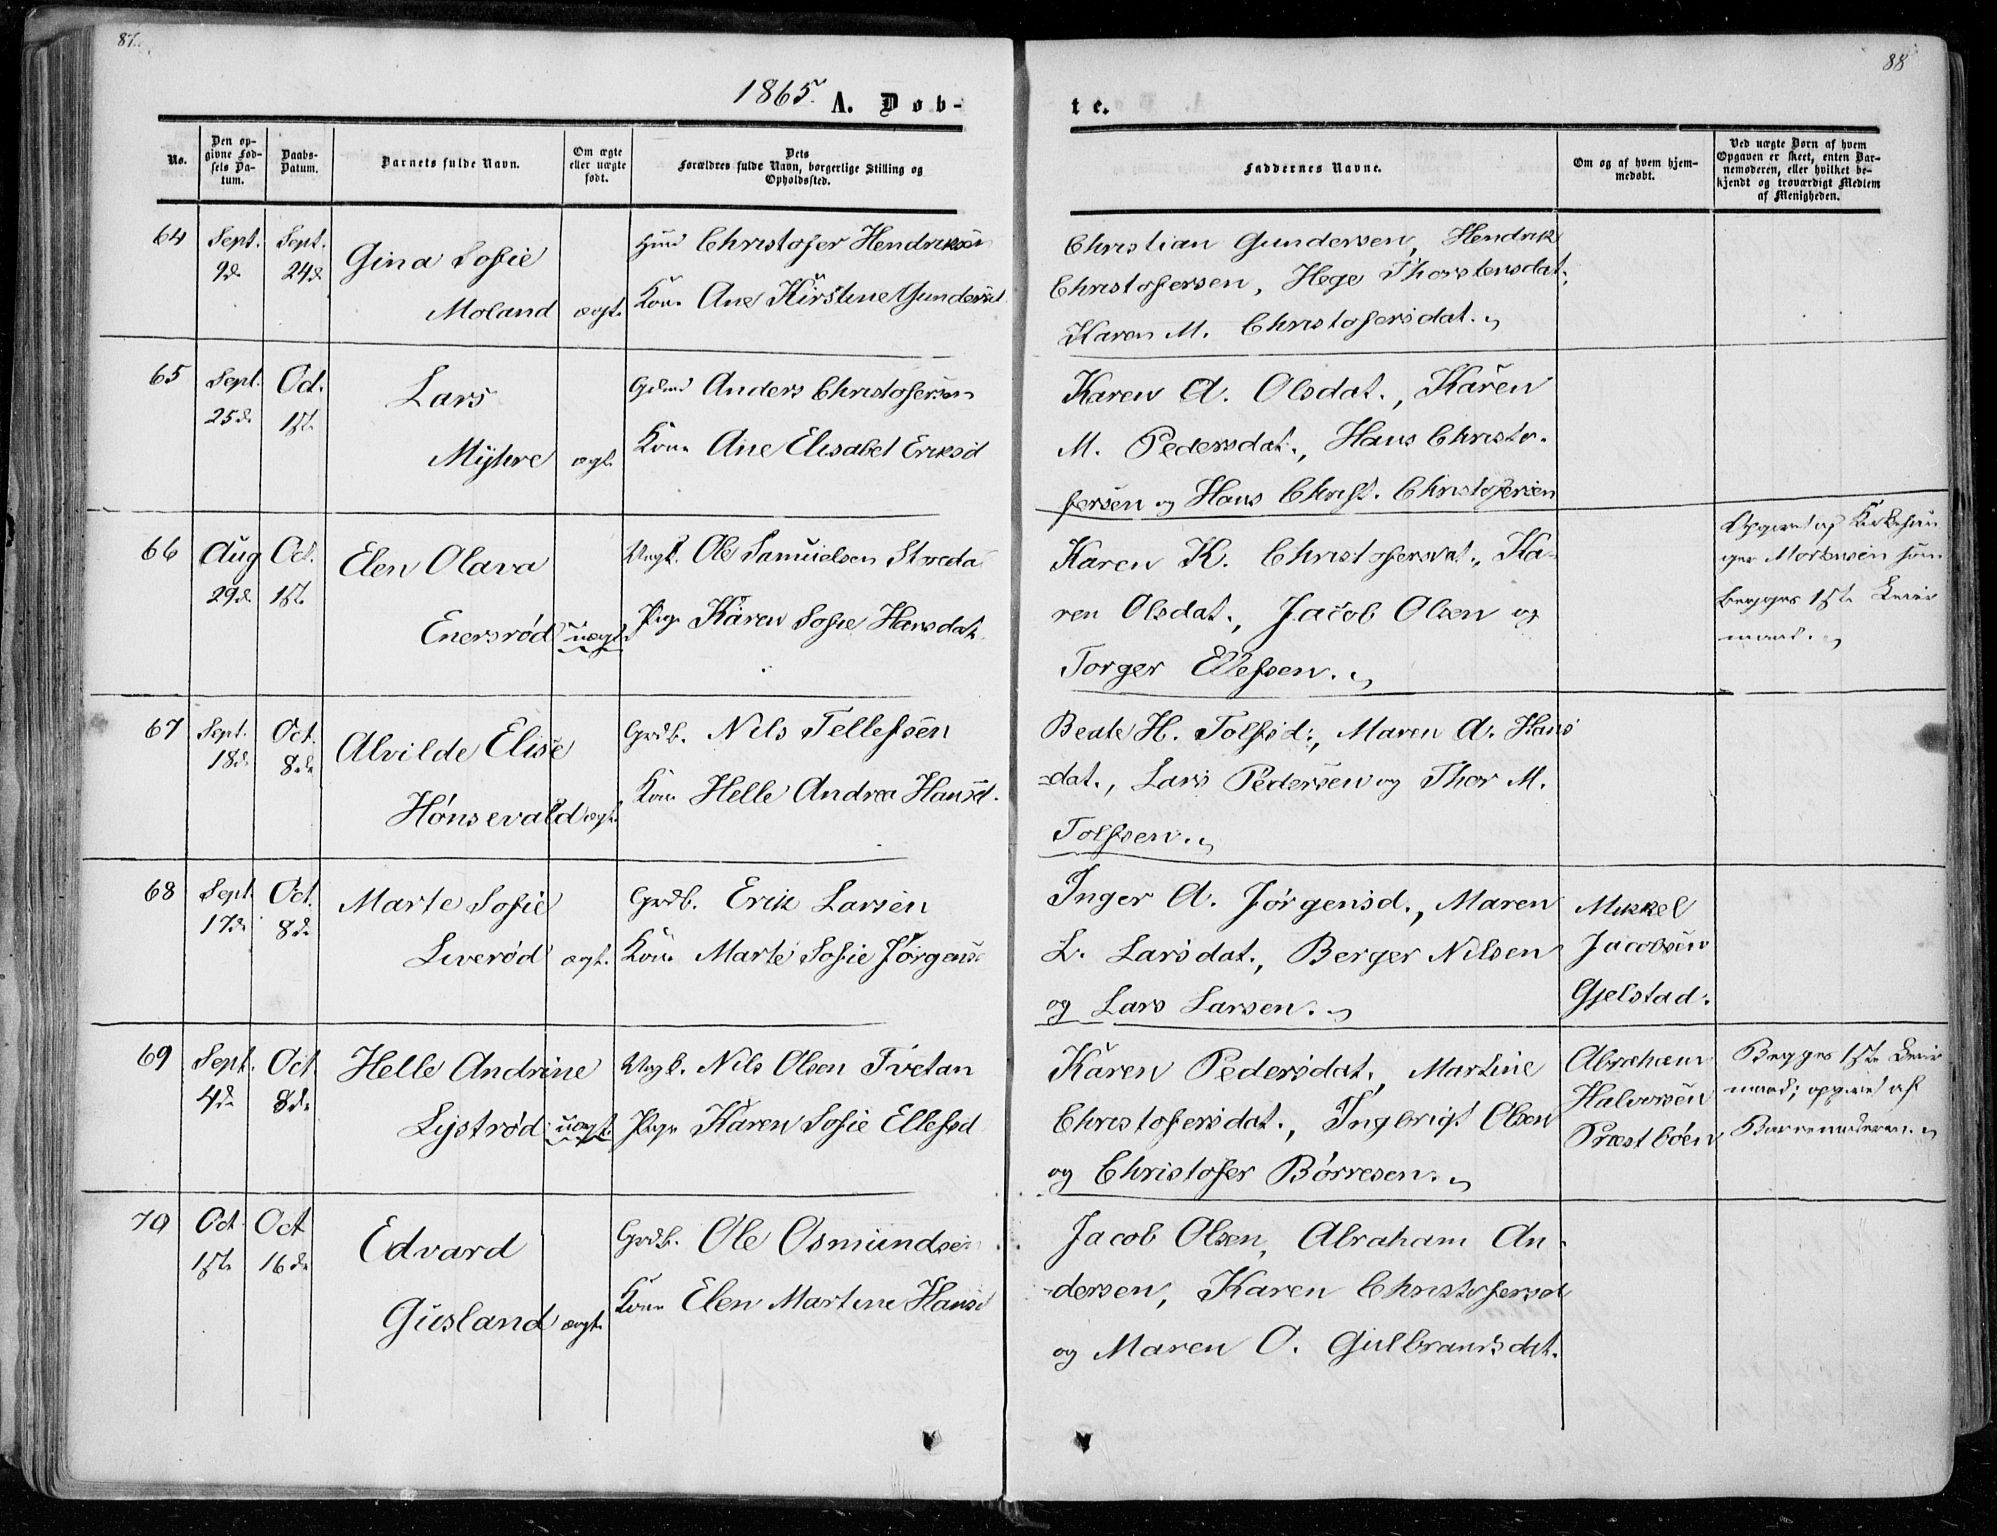 87.
88
1865. A. Døb-
te.
No.
Den op-
givne Fød-
sels Da-
tum.
Daabs-
Datum.
Barnets fulde Navn.
Om ægte
eller uægte
født.
Dets
Forældres fulde Navn, borgerlige Stilling og
Opholdssted.
Faddernes Navne.
Om og af hvem hjem-
medøbt.
Ved uægte Børn af hvem
Opgaven er skeet, enten Bar-
nemoderen, eller hvilket be-
kjendt og troværdigt Medlem
af Menigheden.
64 Sept. 9de Sept. 24de Gina Sofie
Moland ægt.
Christofer Hendriksen
Kone Ane Kirstine Gundersd.
Christian Gundersen, Hendrik
Christofersen, Hege Thorstensdat.
Karen M. Christofersdat.
65 Sept. 25de Oct. 1ste Lars
Myhre ægt.
Anders Christofersen
Kone Ane Elisabet Eriksd
Karen A. Olsdat., Karen
M. Pedersdat., Hans Christo-
fersen og Hans Christ. Christofersen
66 Aug 29de Oct. 1ste Elen Olava
Enersrød uægt.
Ungk. Ole Samuelsen
Pige Karen Sofie Hansdat.
Karen K. Christofersdat., Ka-
ren Olsdat., Jacob Olsen og
Torger Ellefsen.
Opgivet af Kirkesan-
ger Mortensen som
begges 1ste Leier-
maal.
67 Sept. 18de Oct. 8de Alvilde Elise
Hønsevald ægt.
Grdb. Nils Tellefsen
Kone Helle Andrea Hansd.
Beate H. Tolfsd., Maren A. Hans
-dat., Lars Pedersen og Thor M.
Tolfsen.
68 Sept. 17de Oct. 8de Marte Sofie
Liverød ægt.
Grdb. Erik Larsen
Kone Marte Sofie Jørgens
Inger A. Jørgensd., Maren
L. Larsdat., Berger Nilsen
og Lars Larsen.
Mikkel
Jacobsen
Gjelstad.
69 Sept. 4de Oct. 8de Helle Andrine
Lystrød uægt.
Ungk. Nils Olsen Tvetan
Pige Karen Sofie Ellefsd
Karen Pedersdat., Martine
Christofersdat., Ingbrigt Olsen
og Christofer Børresen.
Abraham
Halvorsen
Præstbøen
Begges 1ste Leier
maal; opgivet af
Barnemoderen.
70 Oct. 1ste Oct 16de Edvard
Gusland ægt.
Grdb. Ole Osmundsen
Kone Elen Martine Hansd
Jacob Olsen, Abraham An-
-dersen, Karen Christofersd
og Maren O. Gulbrandsdat.